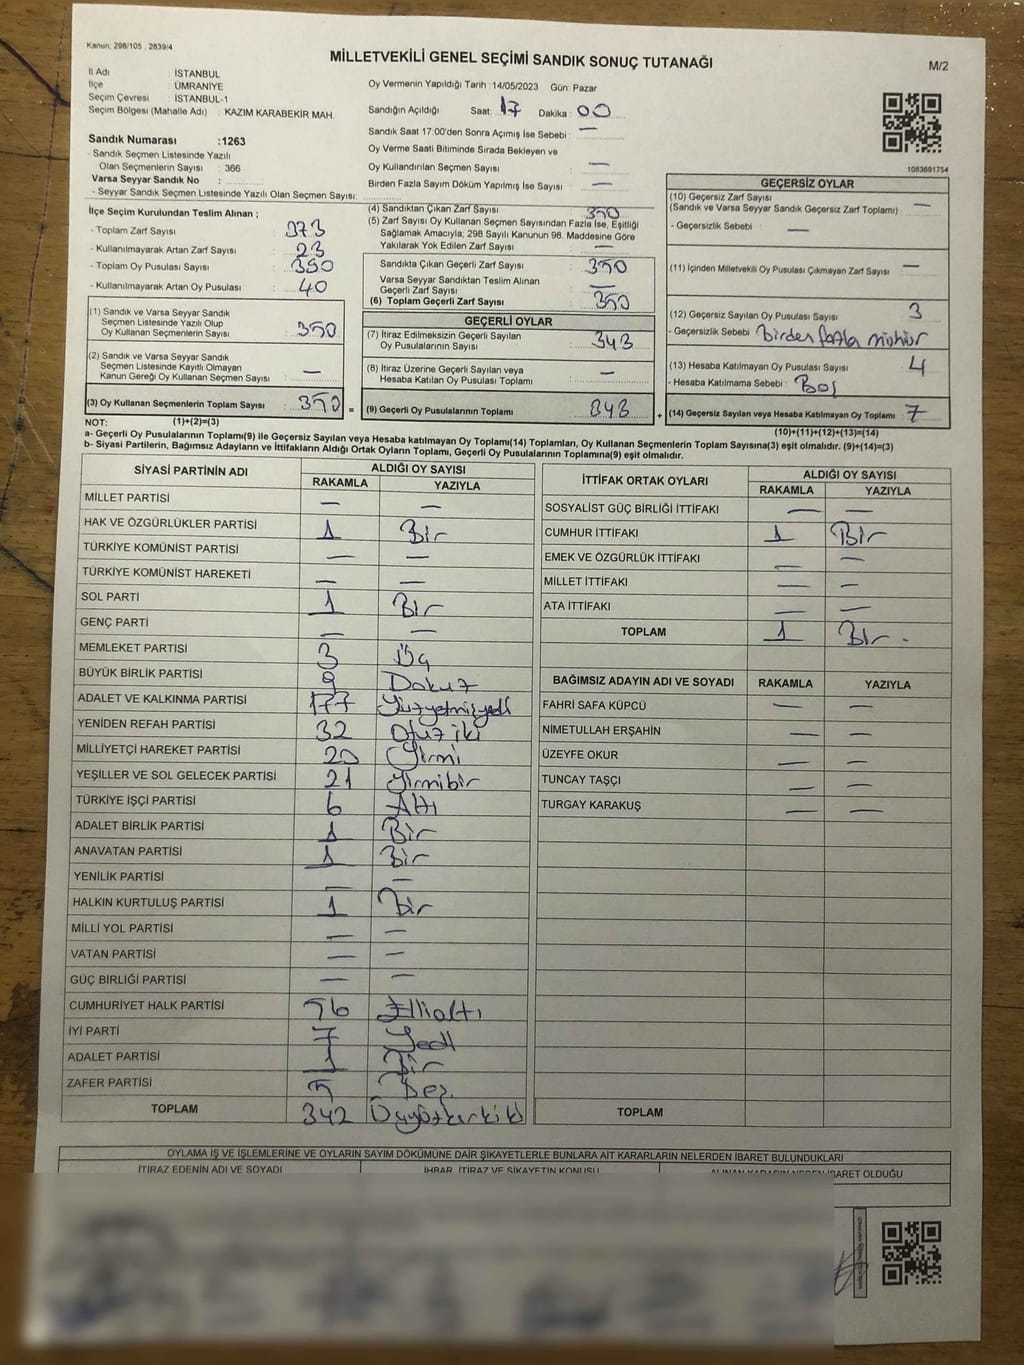 Kanun: 298/105 , 2839/4
MİLLETVEKİLİ GENEL SEÇİMİ SANDIK SONUÇ TUTANAĞI
M/2
İl Adı : İSTANBUL
İlçe : ÜMRANİYE
Seçim Çevresi : İSTANBUL-1
Seçim Bölgesi (Mahalle Adı) : KAZIM KARABEKİR MAH.
Oy Vermenin Yapıldığı Tarih : 14/05/2023 Gün: Pazar
Sandığın Açıldığı Saat : 17 Dakika : 00
Sandık Saat 17:00'den Sonra Açımış İse Sebebi : —
Oy Verme Saati Bitiminde Sırada Bekleyen ve
Oy Kullandırılan Seçmen Sayısı : —
Birden Fazla Sayım Döküm Yapılmış İse Sayısı : —
Sandık Numarası : 1263
- Sandık Seçmen Listesinde Yazılı
Olan Seçmenlerin Sayısı : 366
Varsa Seyyar Sandık No :
- Seyyar Sandık Seçmen Listesinde Yazılı Olan Seçmen Sayısı:
1083691754
İlçe Seçim Kurulundan Teslim Alınan ;
- Toplam Zarf Sayısı : 373
- Kullanılmayarak Artan Zarf Sayısı : 23
- Toplam Oy Pusulası Sayısı : 390
- Kullanılmayarak Artan Oy Pusulası : 40
(1) Sandık ve Varsa Seyyar Sandık
Seçmen Listesinde Yazılı Olup
Oy Kullanan Seçmenlerin Sayısı : 350
(2) Sandık ve Varsa Seyyar Sandık
Seçmen Listesinde Kayıtlı Olmayan
Kanun Gereği Oy Kullanan Seçmen Sayısı : —
(3) Oy Kullanan Seçmenlerin Toplam Sayısı : 350 =
(1)+(2)=(3)
(4) Sandıktan Çıkan Zarf Sayısı : 350
(5) Zarf Sayısı Oy Kullanan Seçmen Sayısından Fazla İse, Eşitliği
Sağlamak Amacıyla; 298 Sayılı Kanunun 98. Maddesine Göre
Yakılarak Yok Edilen Zarf Sayısı : —
Sandıkta Çıkan Geçerli Zarf Sayısı : 350
Varsa Seyyar Sandıktan Teslim Alınan
Geçerli Zarf Sayısı : —
(6) Toplam Geçerli Zarf Sayısı : 350
GEÇERLİ OYLAR
(7) İtiraz Edilmeksizin Geçerli Sayılan
Oy Pusulalarının Sayısı : 343
(8) İtiraz Üzerine Geçerli Sayılan veya
Hesaba Katılan Oy Pusulası Toplamı : —
(9) Geçerli Oy Pusulalarının Toplamı : 343 +
GEÇERSİZ OYLAR
(10) Geçersiz Zarf Sayısı
(Sandık ve Varsa Seyyar Sandık Geçersiz Zarf Toplamı) : —
- Geçersizlik Sebebi : —
(11) İçinden Milletvekili Oy Pusulası Çıkmayan Zarf Sayısı : —
(12) Geçersiz Sayılan Oy Pusulası Sayısı : 3
- Geçersizlik Sebebi : Birden fazla mühür
(13) Hesaba Katılmayan Oy Pusulası Sayısı : 4
- Hesaba Katılmama Sebebi : Boş
(14) Geçersiz Sayılan veya Hesaba Katılmayan Oy Toplamı : 7
(10)+(11)+(12)+(13)=(14)
NOT:
a- Geçerli Oy Pusulalarının Toplamı(9) ile Geçersiz Sayılan veya Hesaba katılmayan Oy Toplamı(14) Toplamları, Oy Kullanan Seçmenlerin Toplam Sayısına(3) eşit olmalıdır. (9)+(14)=(3)
b- Siyasi Partilerin, Bağımsız Adayların ve İttifakların Aldığı Ortak Oyların Toplamı, Geçerli Oy Pusulalarının Toplamına(9) eşit olmalıdır.
SİYASİ PARTİNİN ADI ALDIĞI OY SAYISI
RAKAMLA YAZIYLA
MİLLET PARTİSİ — —
HAK VE ÖZGÜRLÜKLER PARTİSİ 1 Bir
TÜRKİYE KOMÜNİST PARTİSİ — —
TÜRKİYE KOMÜNİST HAREKETİ — —
SOL PARTİ 1 Bir
GENÇ PARTİ — —
MEMLEKET PARTİSİ 3 Üç
BÜYÜK BİRLİK PARTİSİ 9 Dokuz
ADALET VE KALKINMA PARTİSİ 177 Yüzyetmişyedi
YENİDEN REFAH PARTİSİ 32 otuz iki
MİLLİYETÇİ HAREKET PARTİSİ 20 Yirmi
YEŞİLLER VE SOL GELECEK PARTİSİ 21 Yirmibir
TÜRKİYE İŞÇİ PARTİSİ 6 Altı
ADALET BİRLİK PARTİSİ 1 Bir
ANAVATAN PARTİSİ 1 Bir
YENİLİK PARTİSİ — —
HALKIN KURTULUŞ PARTİSİ 1 Bir
MİLLİ YOL PARTİSİ — —
VATAN PARTİSİ — —
GÜÇ BİRLİĞİ PARTİSİ — —
CUMHURİYET HALK PARTİSİ 56 Elliatı
İYİ PARTİ 7 Yedi
ADALET PARTİSİ 1 Bir
ZAFER PARTİSİ 5 Beş
TOPLAM 342 Üçyüzkırkiki
İTTİFAK ORTAK OYLARI ALDIĞI OY SAYISI
RAKAMLA YAZIYLA
SOSYALİST GÜÇ BİRLİĞİ İTTİFAKI — —
CUMHUR İTTİFAKI 1 Bir
EMEK VE ÖZGÜRLÜK İTTİFAKI — —
MİLLET İTTİFAKI — —
ATA İTTİFAKI — —
TOPLAM 1 Bir.
BAĞIMSIZ ADAYIN ADI VE SOYADI RAKAMLA YAZIYLA
FAHRİ SAFA KÜPCÜ — —
NİMETULLAH ERŞAHİN — —
ÜZEYFE OKUR — —
TUNCAY TAŞÇI — —
TURGAY KARAKUŞ — —
TOPLAM
OYLAMA İŞ VE İŞLEMLERİNE VE OYLARIN SAYIM DÖKÜMÜNE DAİR ŞİKAYETLERLE BUNLARA AİT KARARLARIN NELERDEN İBARET BULUNDUKLARI
İTİRAZ EDENİN ADI VE SOYADI İHBAR, İTİRAZ VE ŞİKAYETİN KONUSU ALINAN KARARIN NEDEN İBARET OLDUĞU